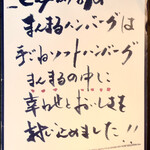 まんまるハンバーグは
手ごねソフトハンバーグ
まんまるの中に
幸わせとおいしさを
封じ込めました!!